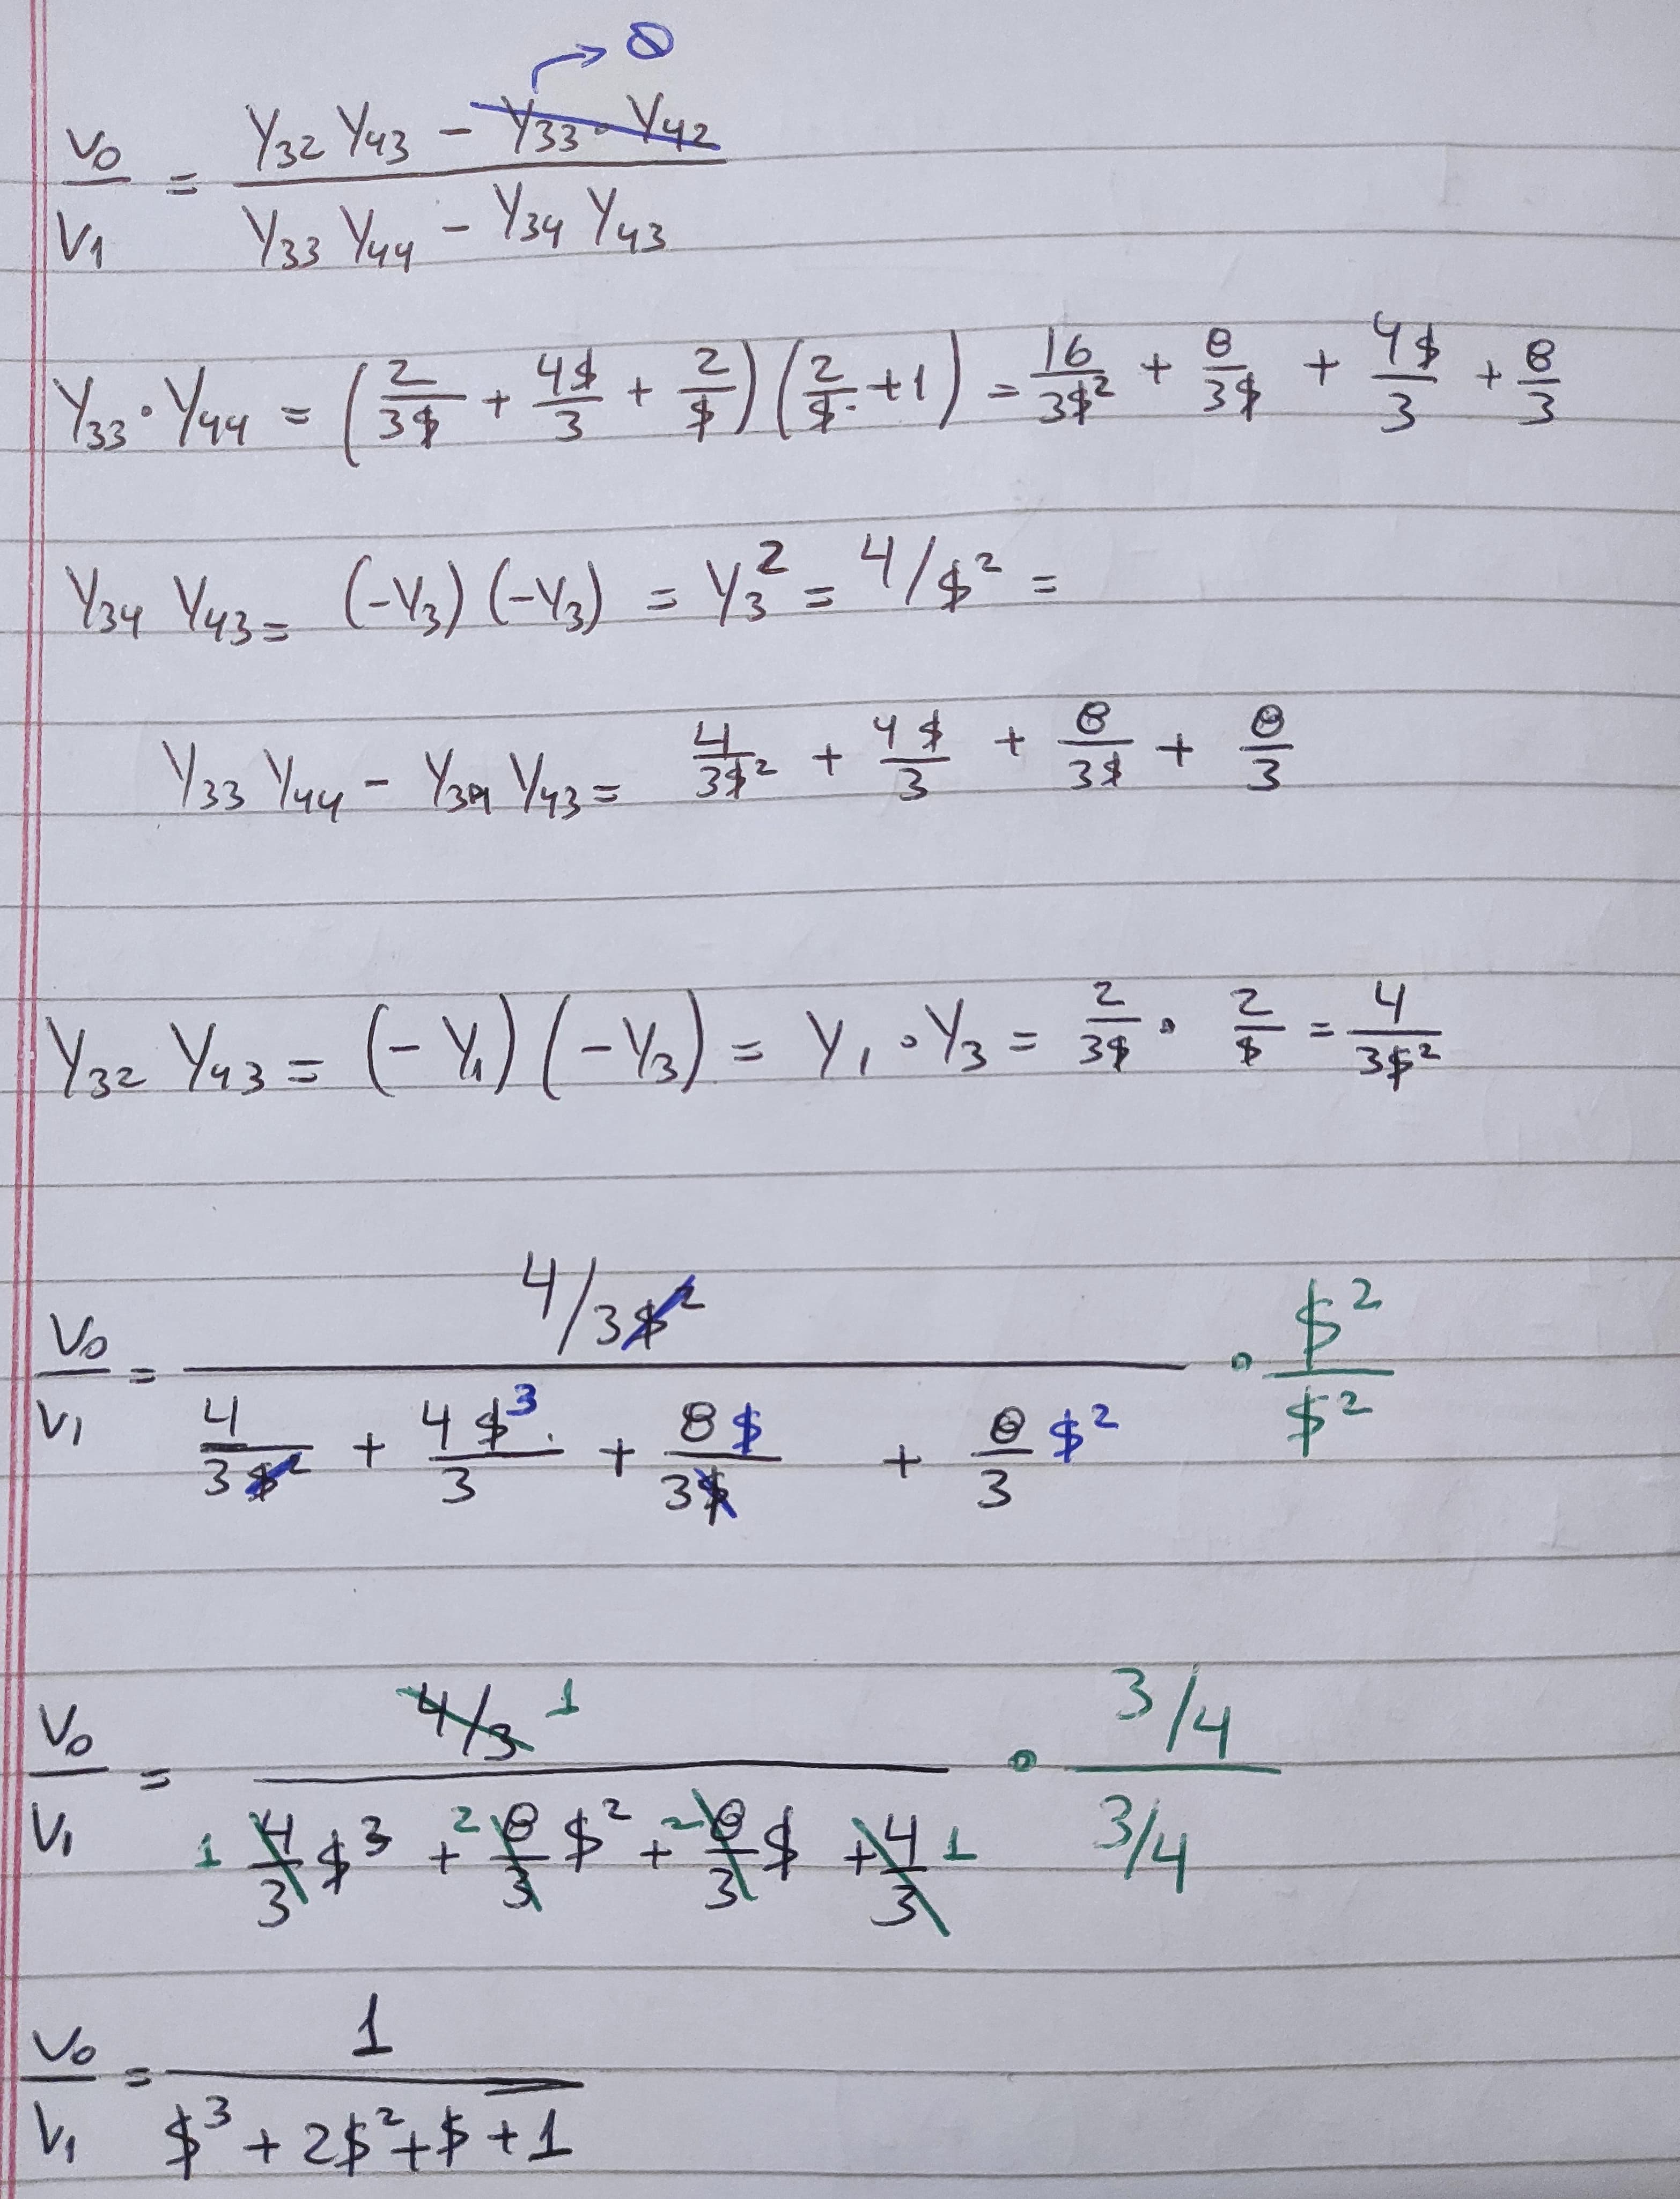 → 0
V0/V1 = (Y32 Y43 - Y33 · Y42) / (Y33 Y44 - Y34 Y43)
Y33 · Y44 = (2/3$ + 4$/3 + 2/$) (2/$ + 1) = 16/3$² + 8/3$ + 4$/3 + 8/3
Y34 Y43 = (-Y3) (-Y3) = Y3² = 4/$² =
Y33 Y44 - Y34 Y43 = 4/3$² + 4$/3 + 8/3$ + 8/3
Y32 Y43 = (-Y1) (-Y3) = Y1 · Y3 = 2/3$ · 2/$ = 4/3$²
V0/V1 = (4/3$²) / (4/3$² + 4$³/3 + 8$/3$ + 8/3 $²) · $²/$²
V0/V1 = (4/3 1) / (1 4/3 $³ + 2 8/3 $² + 2 8/3 $ + 4/3 1) · (3/4)/(3/4)
V0/V1 = 1 / ($³ + 2$² + $ + 1)